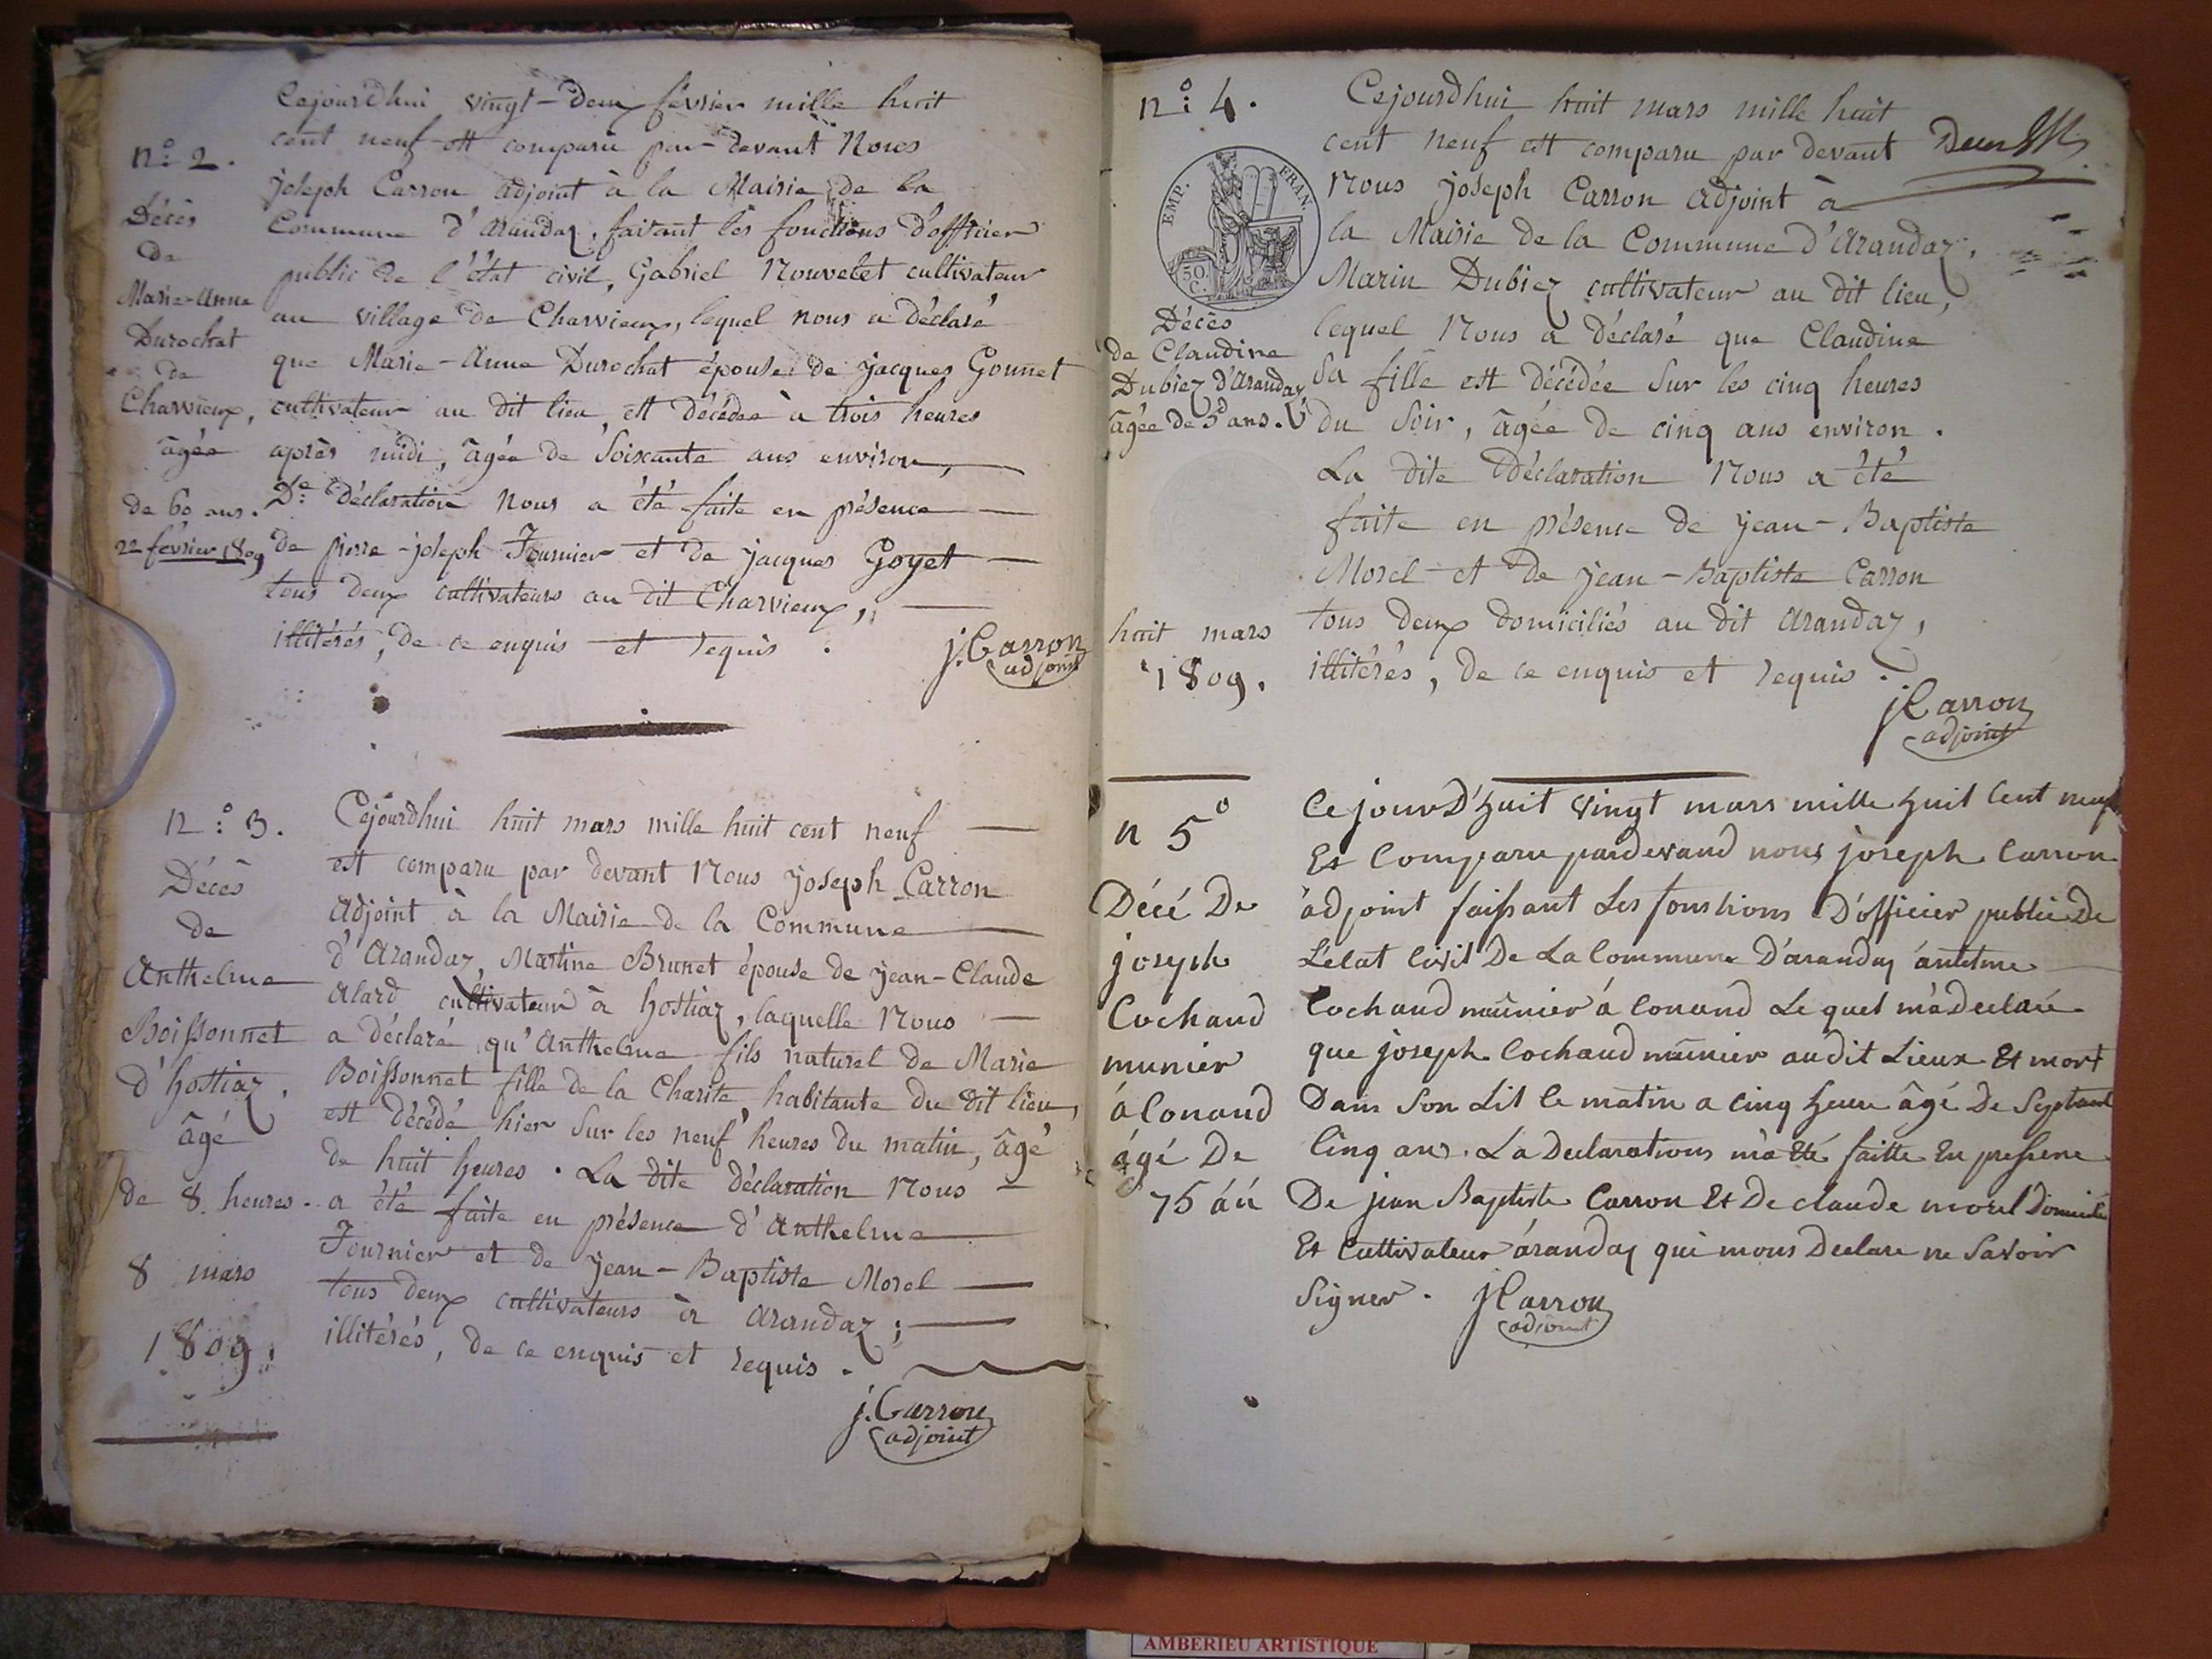 Cejourdhui vingt-deux février mille huit
cent neuf est comparu par devant Nous
n.° 2.
joseph Carron adjoint à la Mairie de la
Décès
Commune d'arandaz, faisant les fonctions d'officier
de
public de l'état civil, Gabriel Nouvelet cultivateur
Marie-anne
au village de Charvieux, lequel nous a déclaré
Durochat
que Marie-anne Durochat épouse de jacques Gonnet
de
Charvieux,
cultivateur au dit lieu, est décédée à trois heures
âgée
après midi, âgée de soixante ans environ,
de 60 ans.
De déclaration nous a été faite en présence
22 février 1809
de pierre-joseph Fournier et de jacques Goyet
tous deux cultivateurs au dit Charvieux,
illitérés, de ce enquis et requis.
j. Carron
adjoint
n.° 3.
Cejourdhui huit mars mille huit cent neuf
est comparu par devant Nous joseph Carron
Décès
adjoint à la Mairie de la Commune
de
d'arandaz, Martine Brunet épouse de jean-Claude
Anthelme
alard cultivateur à hostiaz, laquelle Nous
Boissonnet
a déclaré qu'anthelme fils naturel de Marie
d'hostiaz.
Boissonnet fille de la charité, habitante du dit lieu,
âgé
est décédé hier sur les neuf heures du matin, âgé
de huit heures. La dite déclaration Nous
de 8. heures.
a été faite en présence d'anthelme
Fournier et de jean-Baptiste Morel
8 mars
tous deux cultivateurs à arandaz;
1809.
illitérés, de ce enquis et requis.
j. Carron
adjoint
n.° 4.
Cejourdhui huit mars mille huit
cent neuf est comparu par devant
Nous joseph Carron adjoint à
EMP. FRAN.
50. C.
la Mairie de la Commune d'arandaz,
Marin Dubiez cultivateur au dit lieu,
Décès
lequel Nous a déclaré que Claudine
de Claudine
sa fille est décédée sur les cinq heures
Dubiez d'arandaz
âgée de 5 ans.
du soir, âgée de cinq ans environ.
La dite Déclaration Nous a été
faite en présence de jean-Baptiste
Morel et de jean-Baptiste Carron
huit mars
tous deux domiciliés au dit arandaz,
1809.
illitérés, de ce enquis et requis.
j Carron
adjoint
n 5°
Ce jourD'huit vingt mars mille huit Cent neuf
Et Comparu pardevand nous joseph Carron
Décé De
adjoint faissant Les fonstions D'officier public De
joseph
L'etat Civil De La Commune D'arandaz antetme
Cochand
Cochand munier á Conand Le quel m'a Declaré
munier
que joseph Cochand munier audit Lieux Et mort
á Conand
Dans Son Lit le matin a cinq heure âgé De Septand
ágé De
Cinq ans. La Declarations m'a Eté faitte En pressene
75 án
De jean Baptiste Carron Et De claude morel Domicilié
Et Cultivateur árandaz qui mous Declare ne Savoir
Signer.
j Carron
adjoint
AMBERIEU ARTISTIQUE